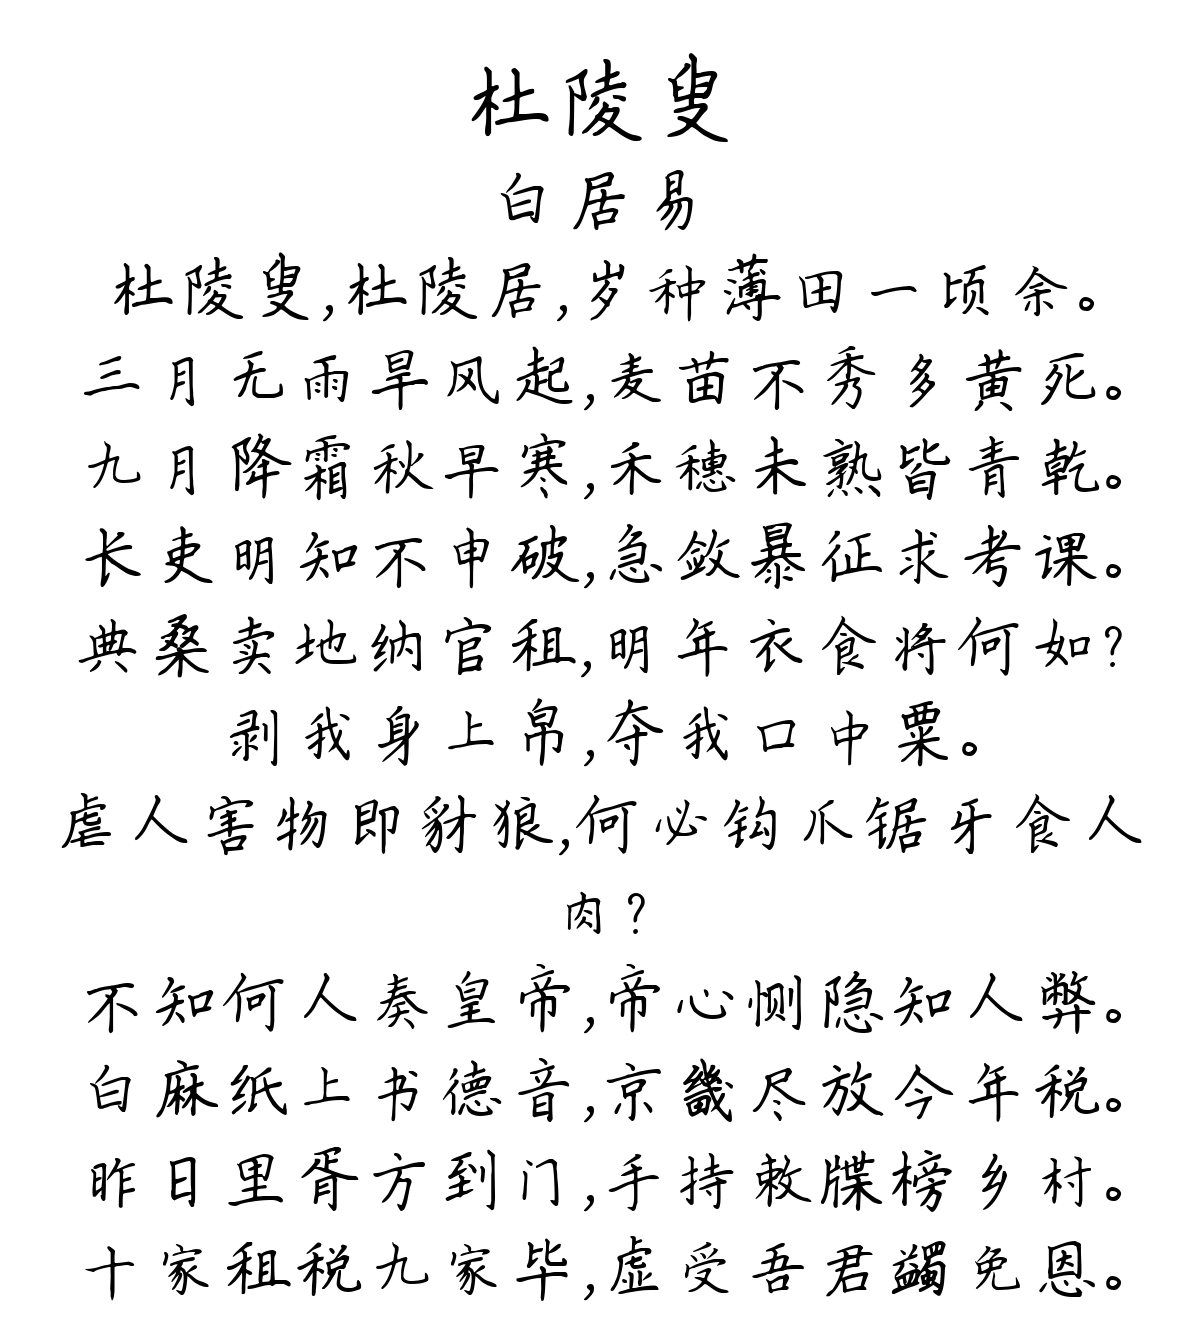 杜陵叟
白居易
杜陵叟,杜陵居,岁种薄田一顷余。
三月无雨旱风起,麦苗不秀多黄死。
九月降霜秋早寒,禾穗未熟皆青乾。
长吏明知不申破,急敛暴征求考课。
典桑卖地纳官租,明年衣食将何如?
剥我身上帛,夺我口中粟。
虐人害物即豺狼,何必钩爪锯牙食人
肉?
不知何人奏皇帝,帝心恻隐知人弊。
白麻纸上书德音,京畿尽放今年税。
昨日里胥方到门,手持敕牒榜乡村。
十家租税九家毕,虚受吾君蠲免恩。